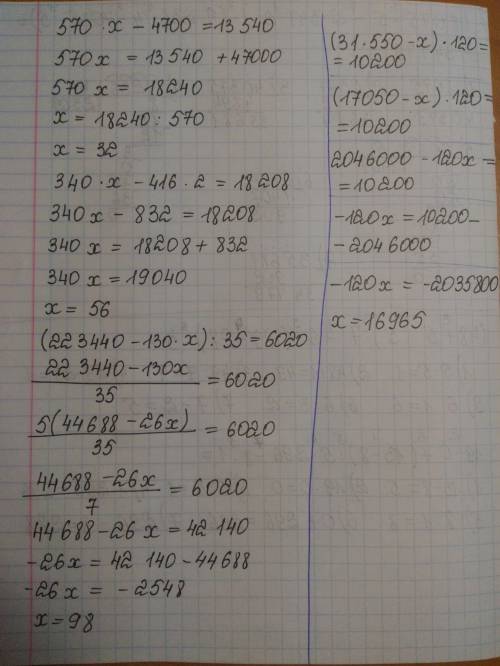 570 · x − 4700 = 13 540
570x = 13 540 + 47000
570 x = 18240
x = 18240 : 570
x = 32
340 · x − 416 · 2 = 18208
340x − 832 = 18208
340x = 18208 + 832
340x = 19040
x = 56
(223440 − 130 · x) : 35 = 6020
22 3440 − 130x
35
= 6020
5(44688 − 26x)
35
= 6020
44688 − 26x
7
= 6020
44688 − 26 x = 42 140
−26x = 42 140 − 44688
−26x = − 2548
x = 98
(31 · 550 − x) · 120 =
= 10200
(17050 − x) · 120 =
= 10200
2046000 − 120x =
= 10200
−120x = 10200 −
− 2046000
−120x = −2035800
x = 16965